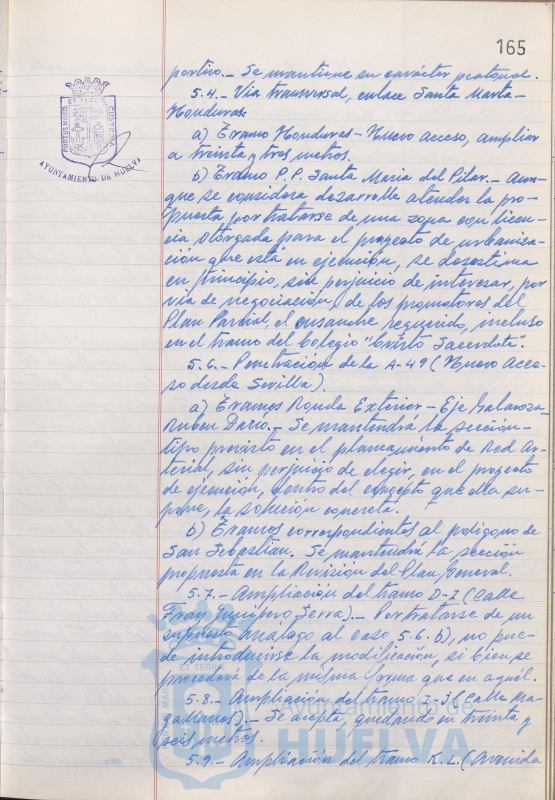 165
portivo.- Se mantiene su carácter peatonal.
5.4.- Vía transversal, enlace Santa Marta-
Honduras:
a) Tramo Honduras - Nuevo Acceso, ampliar
a treinta y tres metros.
b) Tramo P.P. Santa María del Pilar.- Aun-
que se considera desarrolle atender la pro-
puesta por tratarse de una zona con licen-
cia otorgada para el proyecto de urbaniza-
ción que está en ejecución, se desestima
en principio, sin perjuicio de interesar, por
vía de negociación, de los promotores del
Plan Parcial, el ensanche requerido, incluso
en el tramo del Colegio "Cristo Sacerdote".
5.6.- Penetración de la A-49 (Nuevo Acce-
so desde Sevilla).
a) Tramos Ronda Exterior - Eje Galaroza
Ruben Dario.- Se mantendrá la sección-
tipo previsto en el planeamiento de Red Ar-
terial, sin perjuicio de elegir, en el proyecto
de ejecución, dentro del concepto que ella su-
pone, la solución concreta.
b) Tramos correspondientes al polígono de
San Sebastián. Se mantendrá la sección
propuesta en la Revisión del Plan General.
5.7.- Ampliación del tramo D-Z (Calle
Fray Junípero Serra).- Por tratarse de un
supuesto análogo al caso 5.6.b), no pue-
de introducirse la modificación, si bien se
procederá de la misma forma que en aquél.
5.8.- Ampliación del tramo I-J (Calle Ma-
gallanes).- Se acepta, quedando en treinta y
seis metros.
5.9.- Ampliación del tramo K.L. (Avenida
PORTUS MARIS ET TERRAE CUSTODIA
AYUNTAMIENTO DE HUELVA
Ayuntamiento de
HUELVA